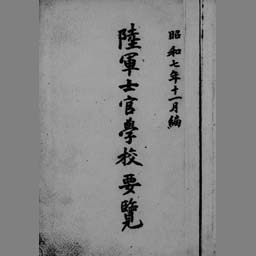 昭和七年十一月編
陸軍士官學校要覽